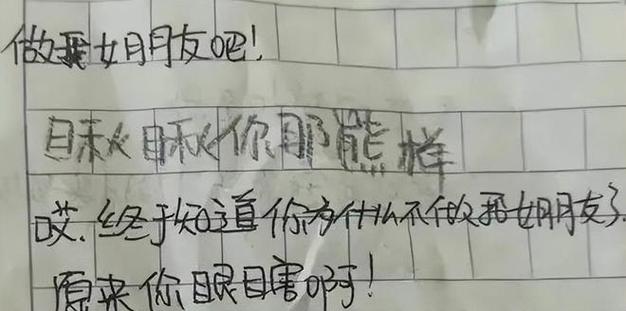 做我女朋友吧！
瞅瞅你那熊样
哎.终于知道你为什么不做我女朋友了.
原来你眼瞎啊！